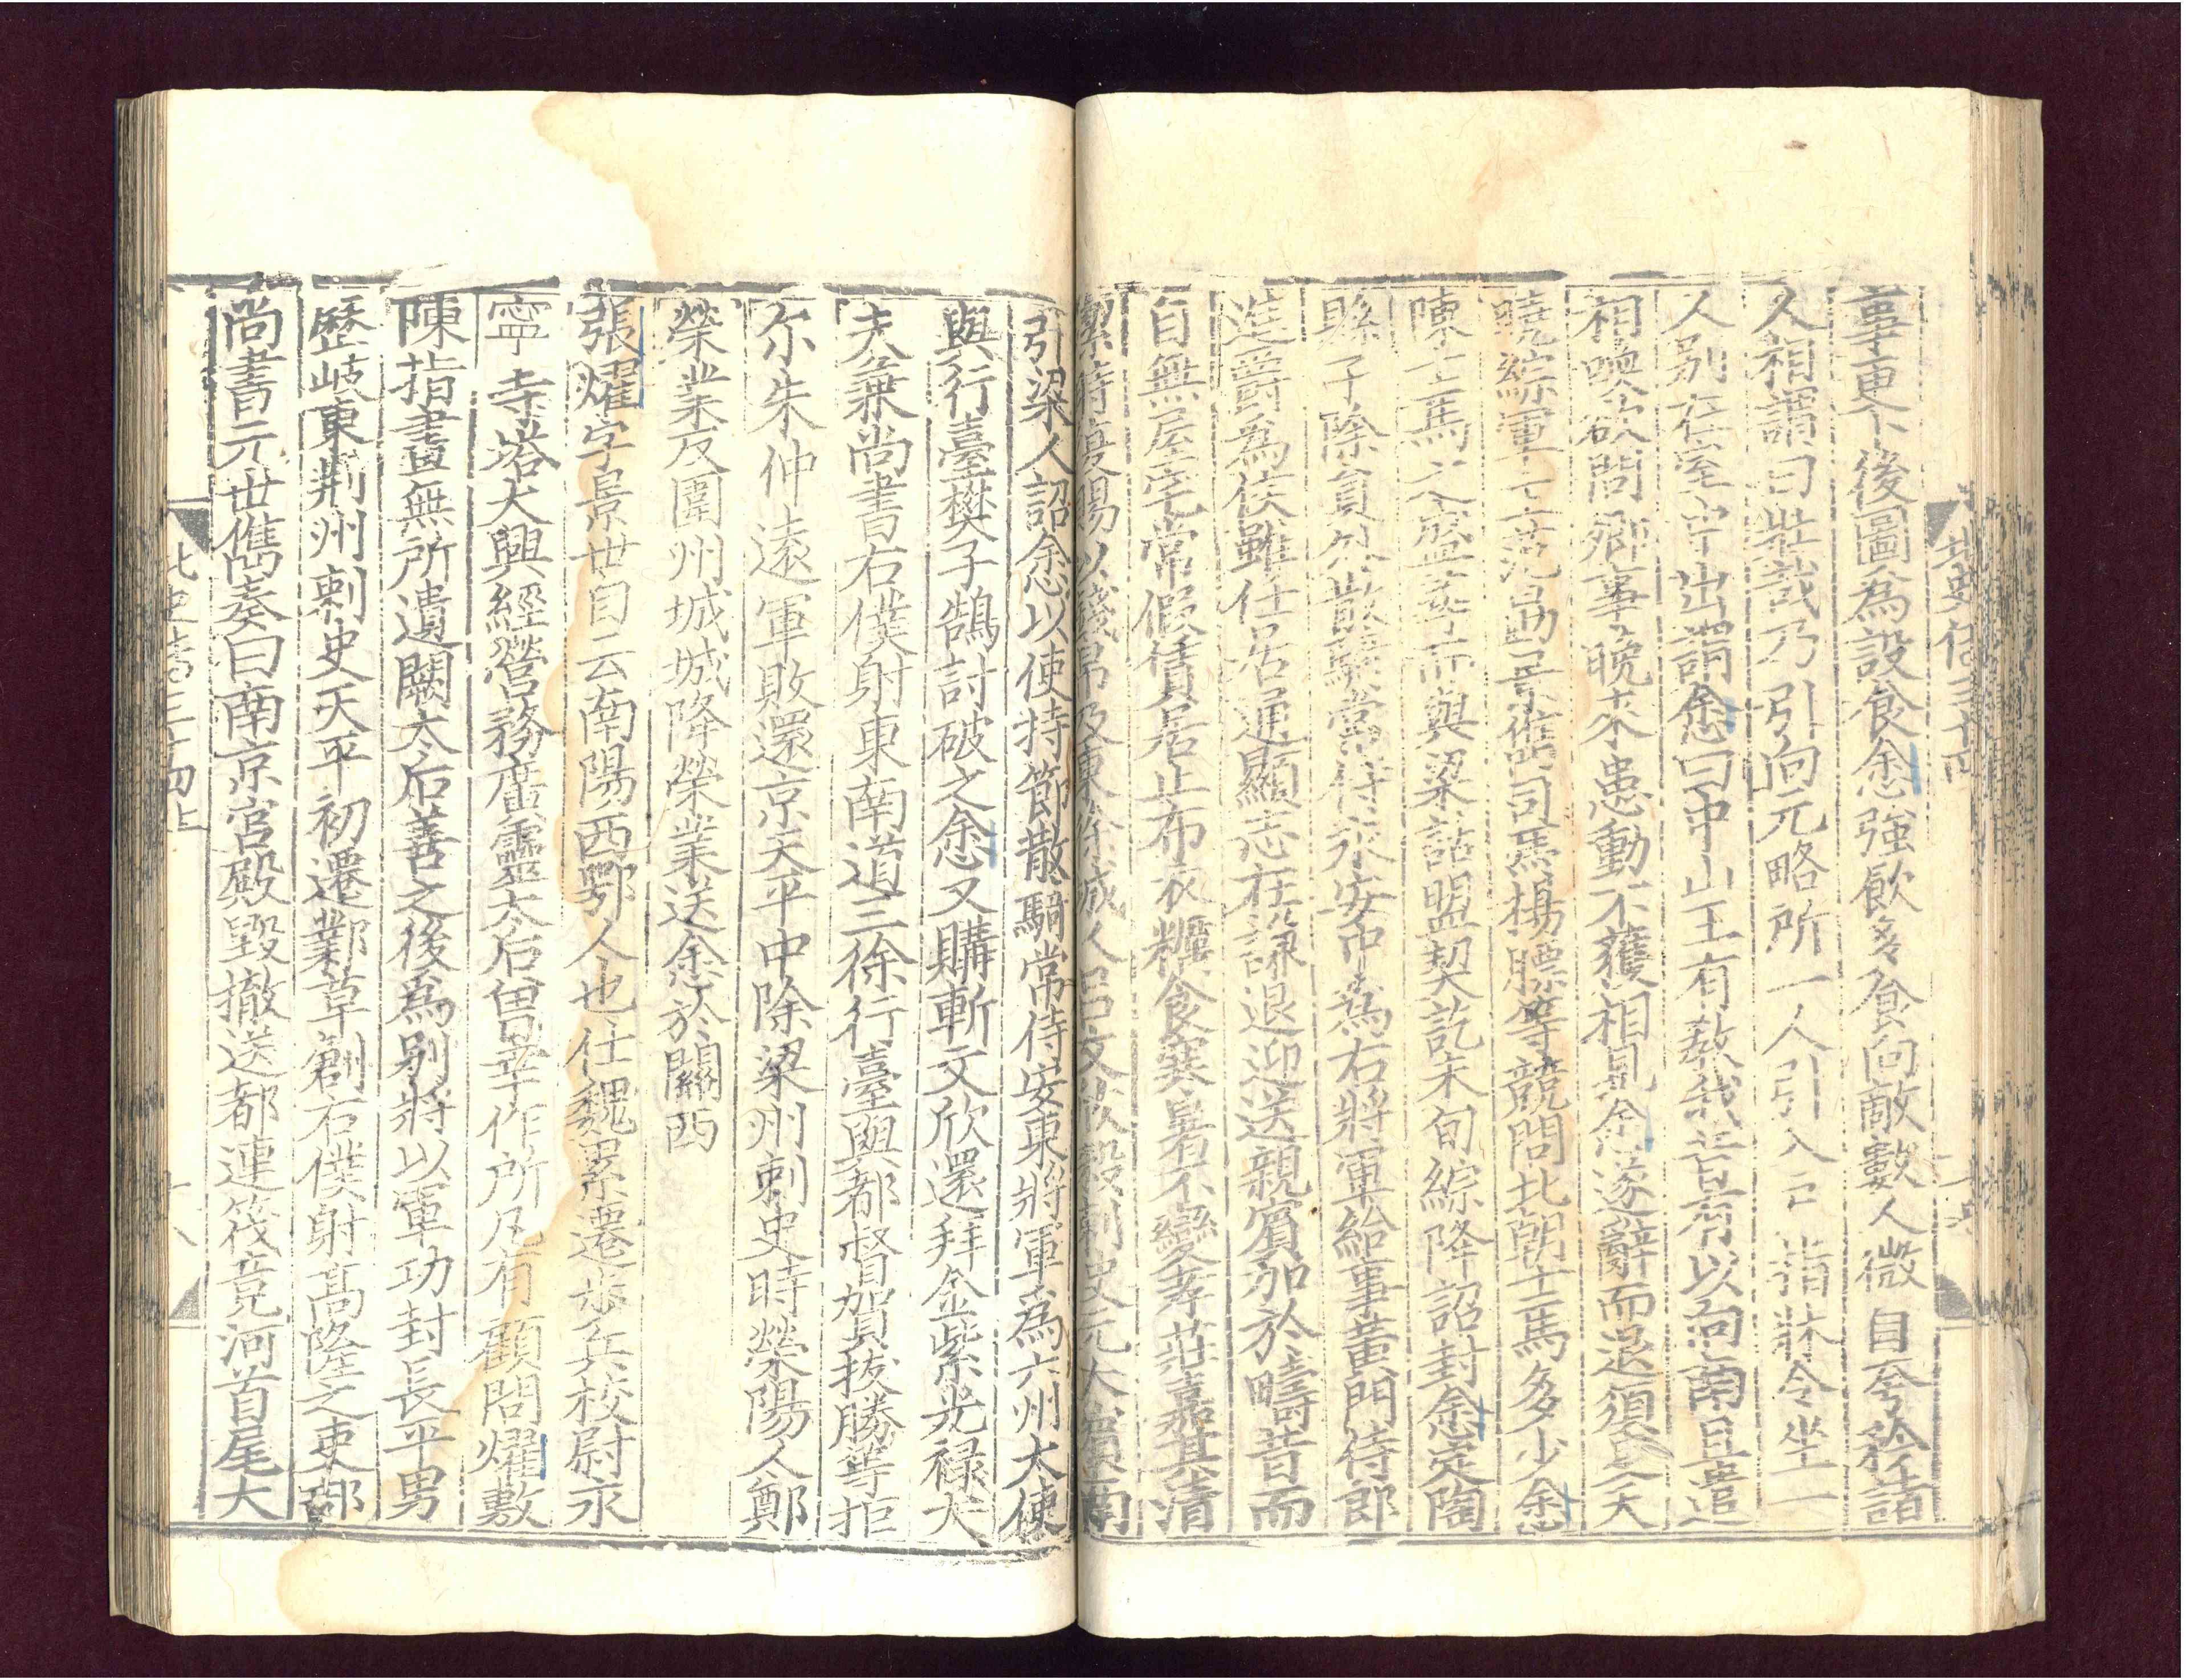 事更卜後圖爲設食悆強飲多食向敵數人微自夸矜諸
人相謂曰壯哉乃引向元略所一人引入戶指牀令坐一
人別在室中出謂悆曰中山王有教我昔有以向南且遣
相喚欲問鄉事晚來患動不獲相見悆遂辭而退須臾天
曉綜軍主范勗景儁司馬楊瞟等競問北朝士馬多少悆
陳士馬之盛還而與梁話盟契訖未旬綜降詔封悆定陶
縣子除員外散騎常侍永安中爲右將軍給事黃門侍郎
進爵爲侯雖任居通顯志在謙退迎送親賓加於疇昔而
自無屋宅常假賃居止布衣糲食寒暑不變孝莊嘉其清
潔時復賜以錢帛及東徐城人呂文欣殺刺史元大賓南
引梁人詔悆以使持節散騎常侍安東將軍爲六州大使
與行臺樊子鵠討破之悆又購斬文欣還拜金紫光禄大
夫兼尚書右僕射東南道三徐行臺與都督賀拔勝等拒
尒朱仲遠軍敗還京天平中除梁州刺史時榮陽人鄭
榮業反圍州城城降榮業送悆於關西
張燿字景世自云南陽西鄂人也仕魏累遷步兵校尉永
寧寺塔大興經營務廣靈太后曾幸作所凡有顧問燿敷
陳指畫無所遺闕太后善之後爲别將以軍功封長平男
歷岐東荆州刺史天平初遷鄴草創右僕射髙隆之吏部
尚書元世儁奏曰南京宫殿毀撤送都連筏竟河首尾大
北史傳三十四上
十八